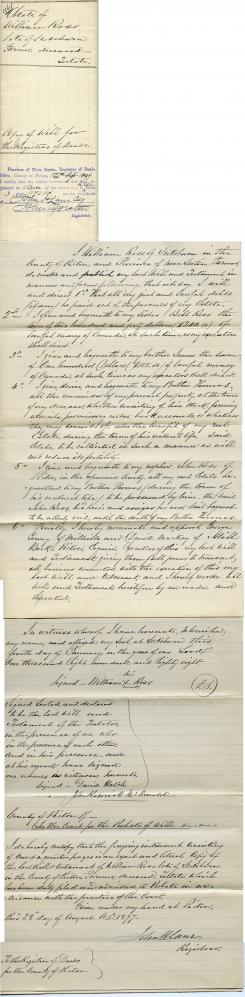 Estate of
William Ross
late of Scotchburn
Farmer, deceased
Testate.
Copy of Will for
the Registrar of Deeds.
Province of Nova Scotia, Registrar of Deeds
Office, County of Pictou,
I certify that the within
Registrar.
I William Ross of Scotchburn in the
County of Pictou and Province of Nova Scotia, Farmer
do make and publish my last Will and Testament in
manner and form following, that is to say. I will
and direct 1st That all my just and lawful debts
be paid out of the proceeds of my Estate.
2nd I give and bequeath to my Sister Bell Ross the
sum of two hundred and forty dollars $240.00 of
lawful money of Canada, at such time as my executors
shall direct.
3rd I give and bequeath to my brother James the sum
of One hundred Dollars $100.00 of lawful money
of Canada, at such time as my executors shall direct.
4th I give, devise and bequeath to my brother Thomas,
all the remainder of my personal property, at the time
of my decease, whether consisting of Live Stock, farming
utensils, provisions, notes or accounts or whatever
they may consist of, also the benefit of my real
Estate, during the time of his natural life, said
Estate to be cultivated in such a manner as will
not reduce its fertility.
5th I give and bequeath to my nephew John Ross of
Pictou, in the aforesaid County all my real Estate
to my brother Thomas, during the term of
his natural life, to be possessed by him, the said
John Ross, his heirs and assigns for ever, said bequest
to be valid only, until the death of my brother Thomas.
6th Finally, I hereby nominate and appoint George
of Millsville and David MacKay of
Pictou County, Executors of this my last Will
and Testament, giving them full power to transact
all business connected with the execution of this my
last Will and Testament, and I hereby revoke all
Wills and Testaments heretofore by me made and
executed.
In witness whereof, I have hereunto, subscribed
my name, and affixed my Seal at Scotchburn this
fourth day of January, in the year of our Lord
One thousand Eight hundred and Eighty eight.
his
Signed William X Ross
mark
L.S.
Signed Sealed and declared
to be the last Will and
Testament of the Testator,
in the presence of us who
in the presence of each other
and in his presence and
at his request, have signed
our names as witnesses hereunto
Signed David Walsh
McDonald
County of Pictou ss
In the Court for the Probate of Wills
I do hereby certify that the foregoing instrument consisting
of one & a quarter pages is an exact and literal Copy of
the last Will & testament of William Ross late of Scotchburn
in the County of Pictou, Farmer deceased, Testate which
has been duly filed and admitted to Probate in
accordance with the practice of this Court.
Given under my hand at Pictou,
this 28th day of August A.D. 1897.
Registrar.
To the Registrar of Deeds
for the County of Pictou